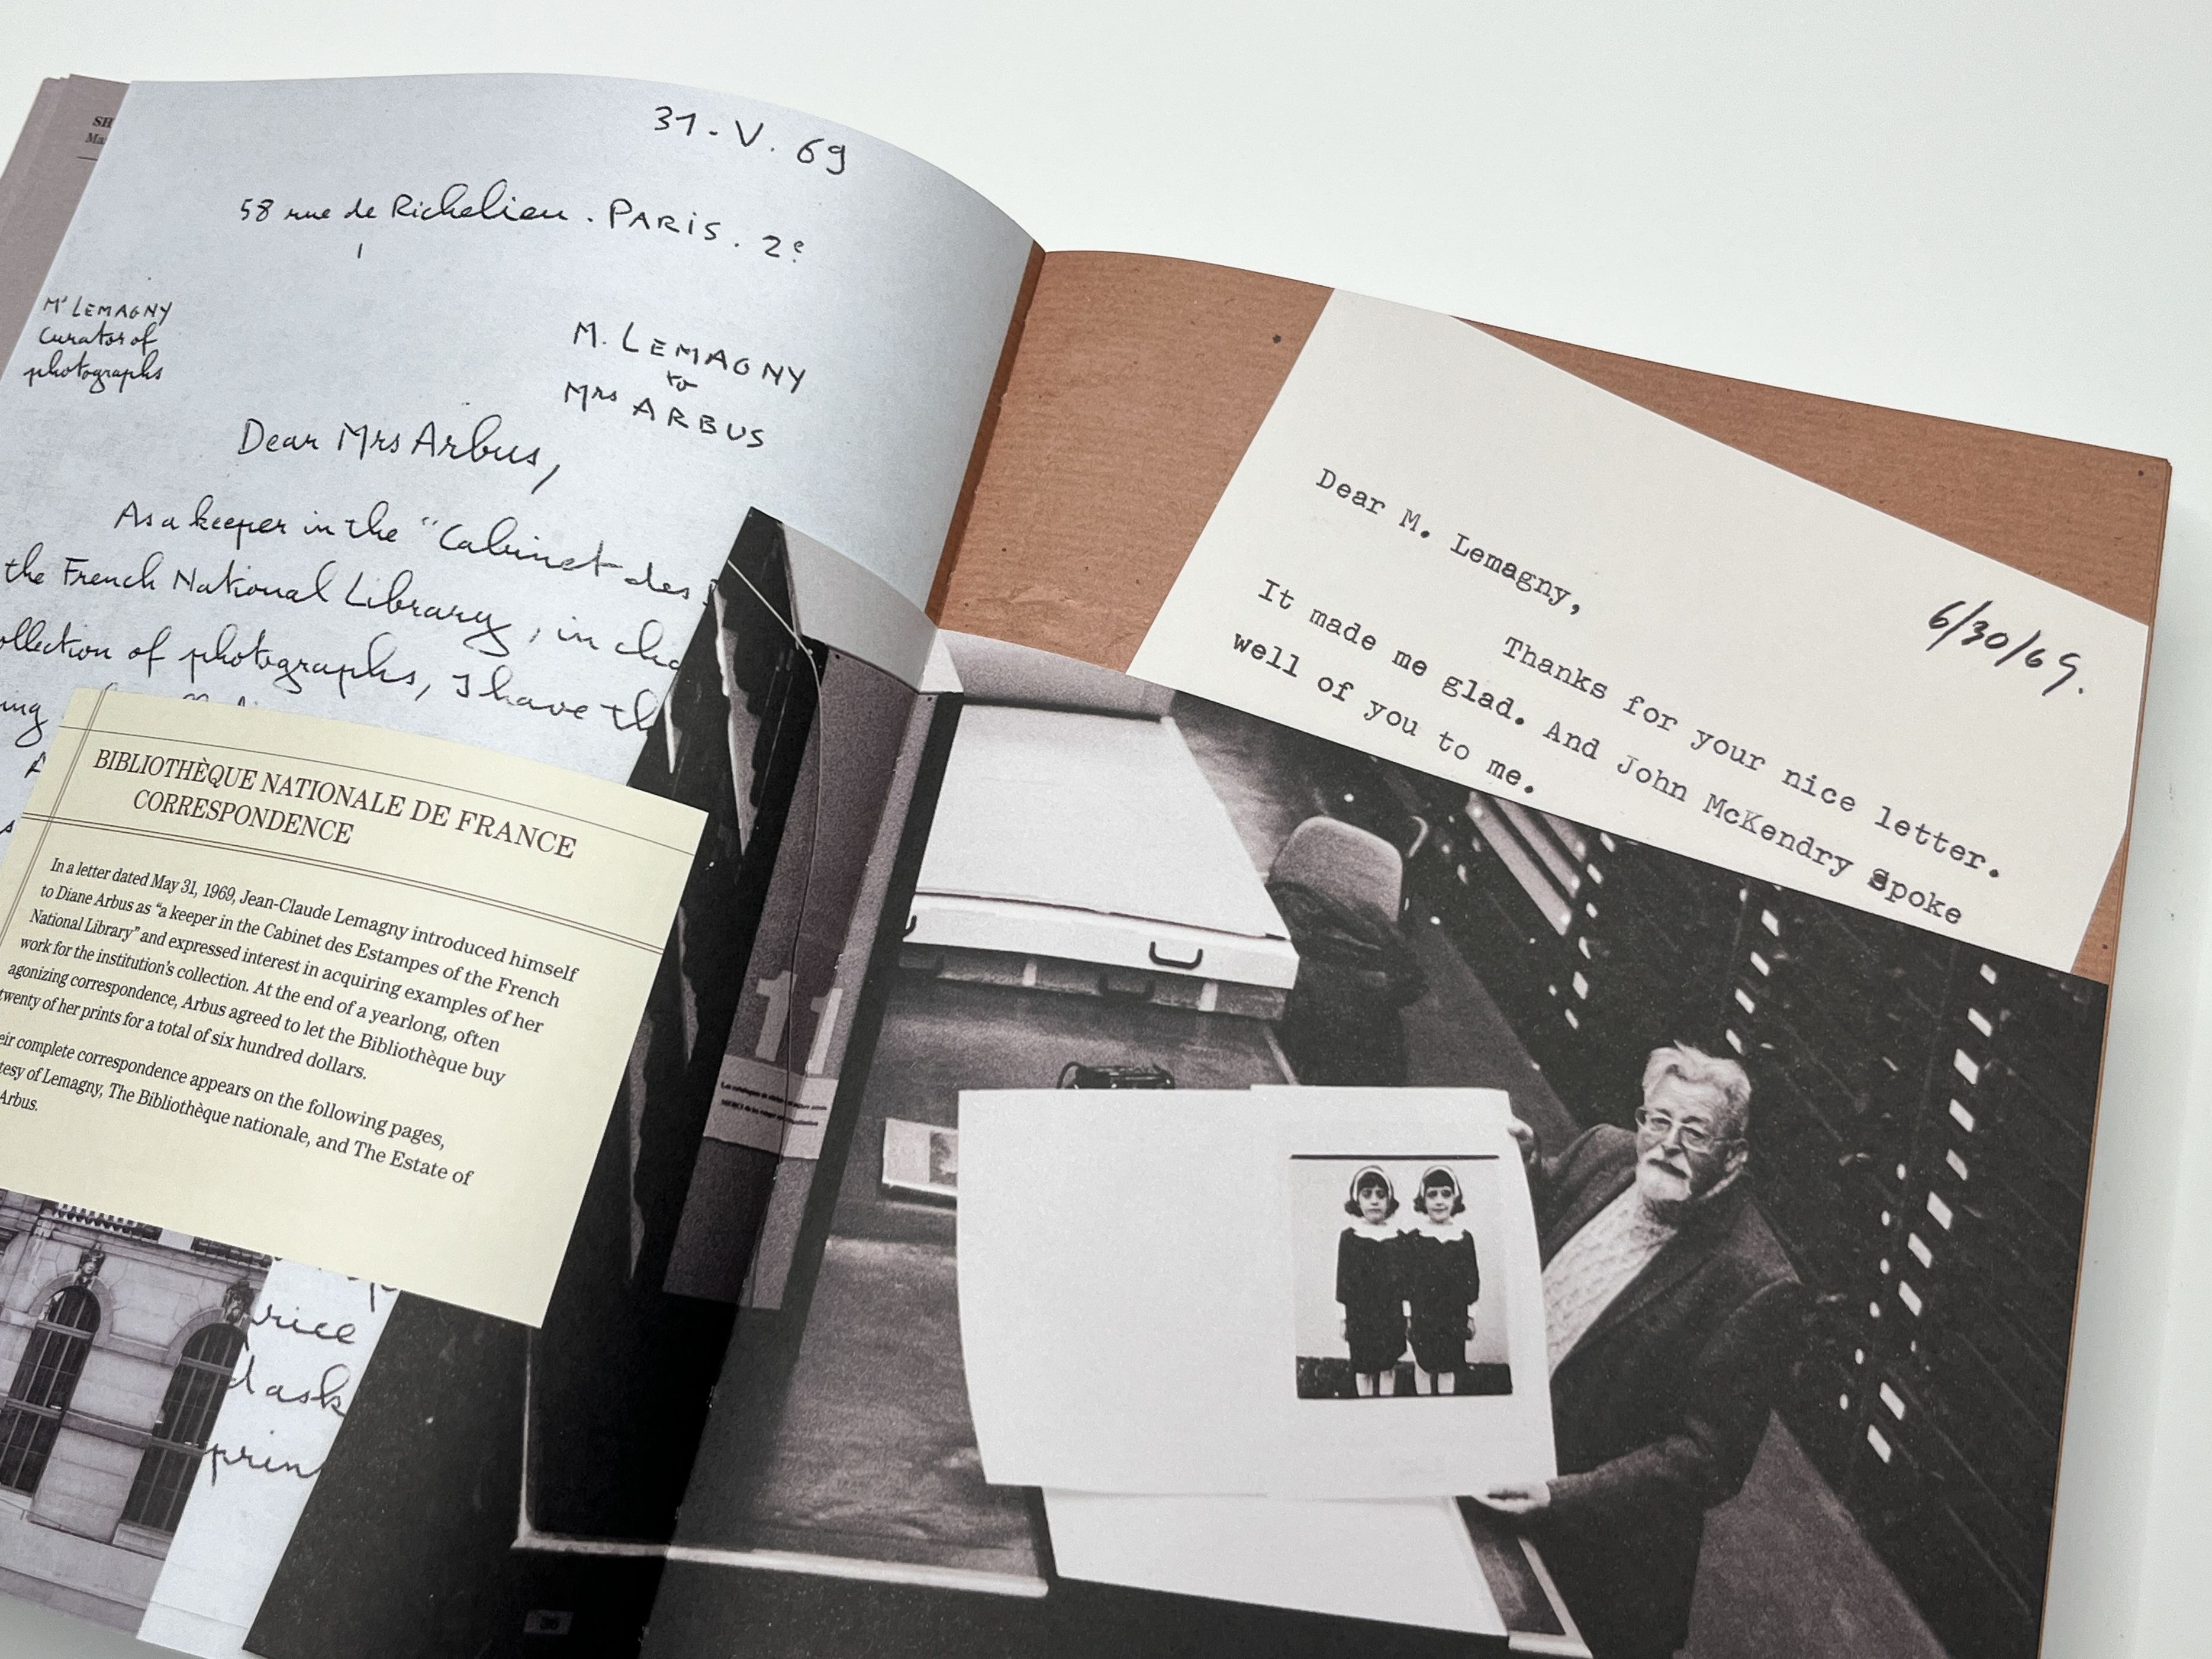 31-V. 69
58 rue de Richelieu. PARIS. 2e
Mr LEMAGNY
Curator of
photographs
M. LEMAGNY
to
Mrs ARBUS
Dear Mrs Arbus,
As a keeper in the "Cabinet des
the French National Library, in
ollection of photographs, I have
BIBLIOTHÈQUE NATIONALE DE FRANCE
CORRESPONDENCE
In a letter dated May 31, 1969, Jean-Claude Lemagny introduced himself
to Diane Arbus as "a keeper in the Cabinet des Estampes of the French
National Library" and expressed interest in acquiring examples of her
work for the institution's collection. At the end of a yearlong, often
agonizing correspondence, Arbus agreed to let the Bibliothèque buy
twenty of her prints for a total of six hundred dollars.
eir complete correspondence appears on the following pages,
tesy of Lemagny, The Bibliothèque nationale, and The Estate of
Arbus.
rice
d ask
prin
11
Dear M. Lemagny,
6/30/69.
Thanks for your nice letter.
It made me glad. And John McKendry Spoke
well of you to me.